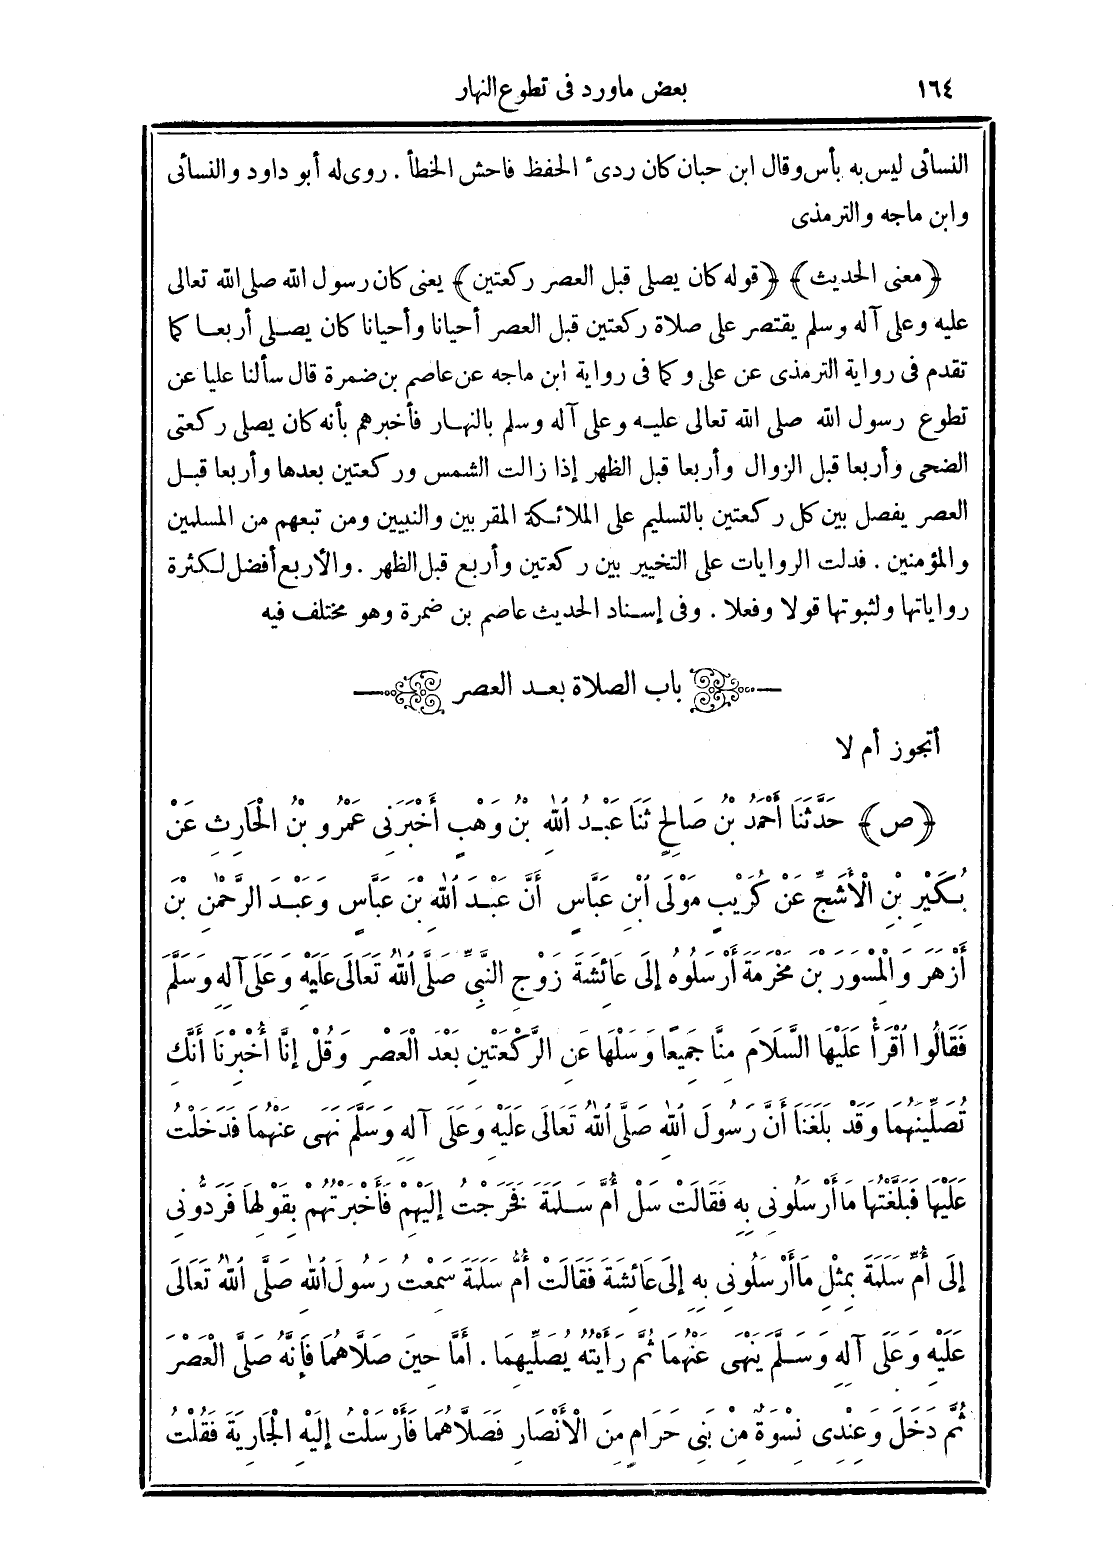 ١٦٤ بعض ماورد فى تطوع النهار
النسائى ليس به بأس وقال ابن حبان كان ردىء الحفظ فاحش الخطأ . روى له أبو داود والنسائى
وابن ماجه والترمذى
﴿معنى الحديث﴾ ﴿قوله كان يصلى قبل العصر ركعتين﴾ يعنى كان رسول الله صلى الله تعالى
عليه وعلى آله وسلم يقتصر على صلاة ركعتين قبل العصر أحيانا وأحيانا كان يصلى أربعا كما
تقدم فى رواية الترمذى عن على وكما فى رواية ابن ماجه عن عاصم بن ضمرة قال سألنا عليا عن
تطوع رسول الله صلى الله تعالى عليه وعلى آله وسلم بالنهار فأخبرهم بأنه كان يصلى ركعتى
الضحى وأربعا قبل الزوال وأربعا قبل الظهر إذا زالت الشمس وركعتين بعدها وأربعا قبل
العصر يفصل بين كل ركعتين بالتسليم على الملائكة المقربين والنبيين ومن تبعهم من المسلمين
والمؤمنين . فدلت الروايات على التخيير بين ركعتين وأربع قبل الظهر . والأربع أفضل لكثرة
رواياتها ولثبوتها قولا وفعلا . وفى إسناد الحديث عاصم بن ضمرة وهو مختلف فيه
باب الصلاة بعد العصر
أتجوز أم لا
﴿ص﴾ حَدَّثَنَا أَحْمَدُ بْنُ صَالِحٍ ثَنَا عَبْدُ اللهِ بْنُ وَهْبٍ أَخْبَرَنِى عَمْرُو بْنُ الْحَارِثِ عَنْ
بُكَيْرِ بْنِ الْأَشَجِّ عَنْ كُرَيْبٍ مَوْلَى ابْنِ عَبَّاسٍ أَنَّ عَبْدَ اللهِ بْنَ عَبَّاسٍ وَعَبْدَ الرَّحْمٰنِ بْنَ
أَزْهَرَ وَالْمِسْوَرَ بْنَ مَخْرَمَةَ أَرْسَلُوهُ إِلَى عَائِشَةَ زَوْجِ النَّبِىِّ صَلَّى اللهُ تَعَالَى عَلَيْهِ وَعَلَى آلِهِ وَسَلَّمَ
فَقَالُوا اقْرَأْ عَلَيْهَا السَّلَامَ مِنَّا جَمِيعًا وَسَلْهَا عَنِ الرَّكْعَتَيْنِ بَعْدَ الْعَصْرِ وَقُلْ إِنَّا أُخْبِرْنَا أَنَّكِ
تُصَلِّينَهُمَا وَقَدْ بَلَغَنَا أَنَّ رَسُولَ اللهِ صَلَّى اللهُ تَعَالَى عَلَيْهِ وَعَلَى آلِهِ وَسَلَّمَ نَهَى عَنْهُمَا فَدَخَلْتُ
عَلَيْهَا فَبَلَّغْتُهَا مَا أَرْسَلُونِى بِهِ فَقَالَتْ سَلْ أُمَّ سَلَمَةَ فَخَرَجْتُ إِلَيْهِمْ فَأَخْبَرْتُهُمْ بِقَوْلِهَا فَرَدُّونِى
إِلَى أُمِّ سَلَمَةَ بِمِثْلِ مَا أَرْسَلُونِى بِهِ إِلَى عَائِشَةَ فَقَالَتْ أُمُّ سَلَمَةَ سَمِعْتُ رَسُولَ اللهِ صَلَّى اللهُ تَعَالَى
عَلَيْهِ وَعَلَى آلِهِ وَسَلَّمَ يَنْهَى عَنْهُمَا ثُمَّ رَأَيْتُهُ يُصَلِّيهِمَا . أَمَّا حِينَ صَلَّاهُمَا فَإِنَّهُ صَلَّى الْعَصْرَ
ثُمَّ دَخَلَ وَعِنْدِى نِسْوَةٌ مِنْ بَنِى حَرَامٍ مِنَ الْأَنْصَارِ فَصَلَّاهُمَا فَأَرْسَلْتُ إِلَيْهِ الْجَارِيَةَ فَقُلْتُ